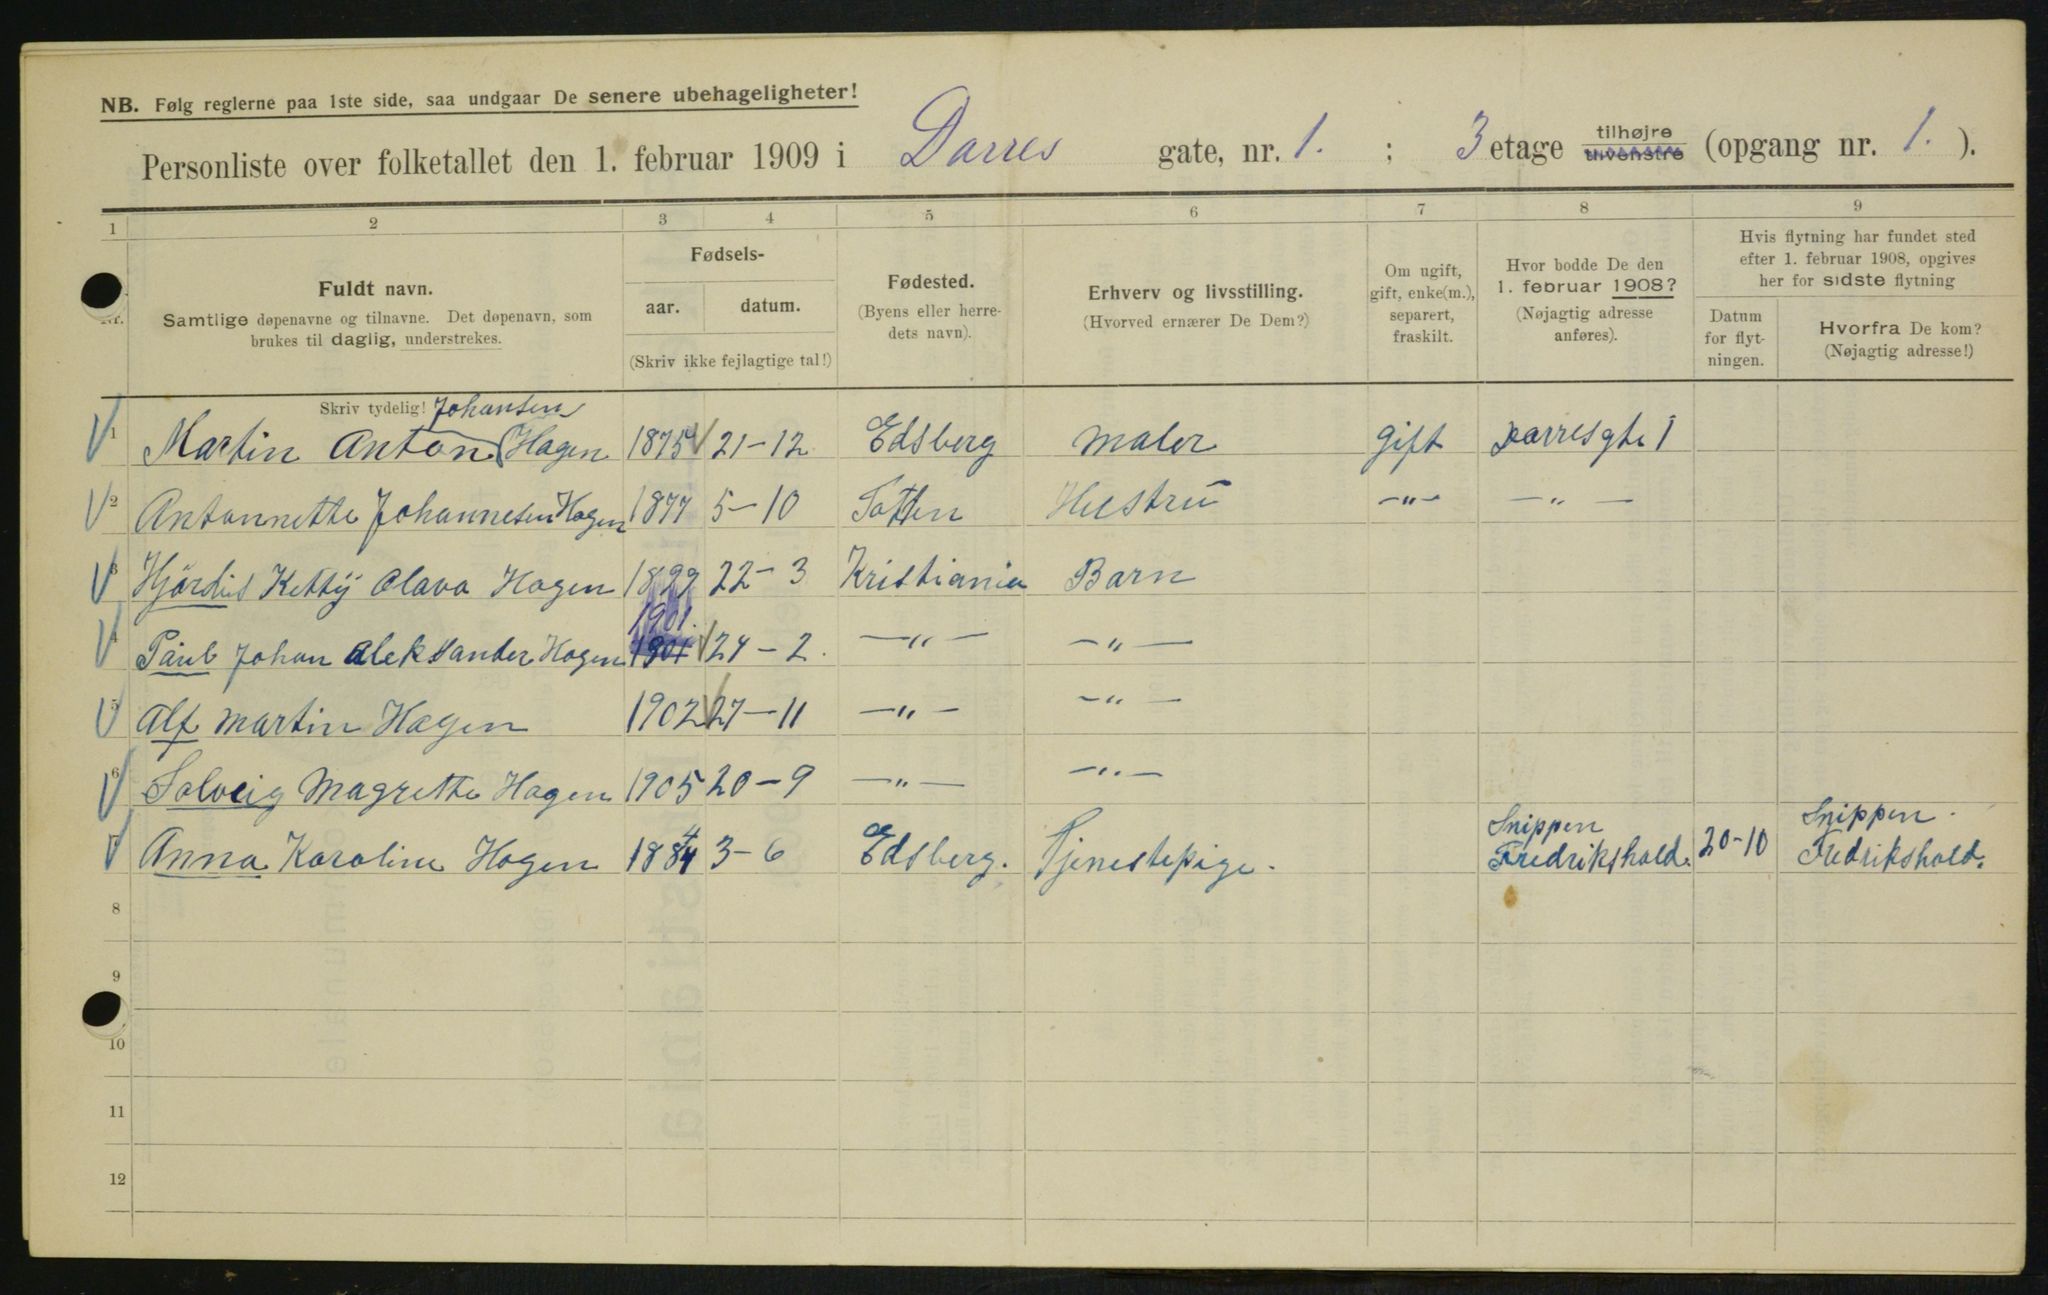 NB. Følg reglerne paa 1ste side, saa undgaar De senere ubehageligheter!
Personliste over folketallet den 1. februar 1909 i Darres gate, nr. 1. ; 3 etage tilhøjre tilvenstre (opgang nr. 1. ).
1 2 3 4 5 6 7 8 9
Nr.
Fuldt navn.
Samtlige døpenavne og tilnavne. Det døpenavn, som
brukes til daglig, understrekes.
Skriv tydelig!
Fødsels-
aar. datum.
(Skriv ikke fejlagtige tal!)
Fødested.
(Byens eller herre-
dets navn).
Erhverv og livsstilling.
(Hvorved ernærer De Dem?)
Om ugift,
gift, enke(m.),
separert,
fraskilt.
Hvor bodde De den
1. februar 1908?
(Nøjagtig adresse
anføres).
Hvis flytning har fundet sted
efter 1. februar 1908, opgives
her for sidste flytning
Datum
for flyt-
ningen.
Hvorfra De kom?
(Nøjagtig adresse!)
Johansen
1 Martin Anton (Hagen 1875 21-12 Edsberg Maler gift Darresgte 1
2 Antonnette Johannesen Hagen 1877 5-10 Totten Hustru —"— —"—
3 Hjørdis Ketty Olava Hagen 1899 22-3 Kristiania Barn
1901.
4 Paul Johan Aleksander Hagen 1901 24-2. —"— —"—
5 Alf Martin Hagen 1902 27-11 —"— —"—
6 Solveig Magrette Hagen 1905 20-9 —"— —"—
4 Snippen Snippen.
7 Anna Karoline Hagen 1884 3-6 Edsberg. Tjenestepige. Fredrikshald. 20-10 Fredrikshald.
8
9
10
11
12